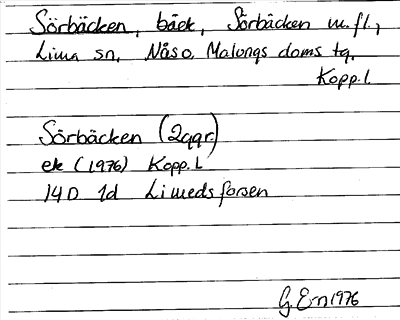 Sörbäcken, bäck, Sörbäcken m.fl.,
Lima sn, Nåso, Malungs doms tg,
Kopp.l.
Sörbäcken (2ggr)
ek (1976) Kopp.L
14D 1d Limedsforsen
G. Ern 1976